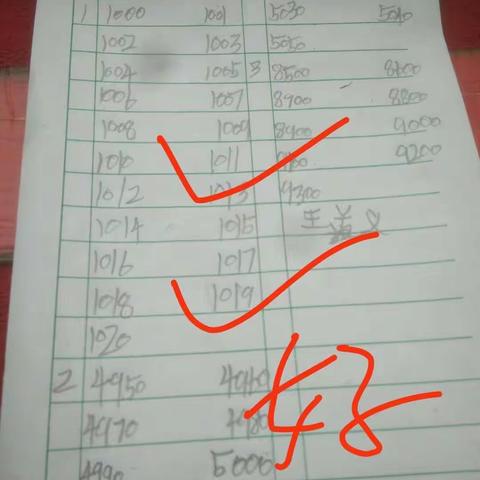 1 1000 1001 5030 5040
1002 1003 5050
1004 1005 3 8500 8600
1006 1007 8700 8800
1008 1009 8900 9000
1010 1011 9100 9200
1012 1013 9300
1014 1015
1016 1017
1018 1019
1020
2 4950 4960
4970 4980
4990 5000
好